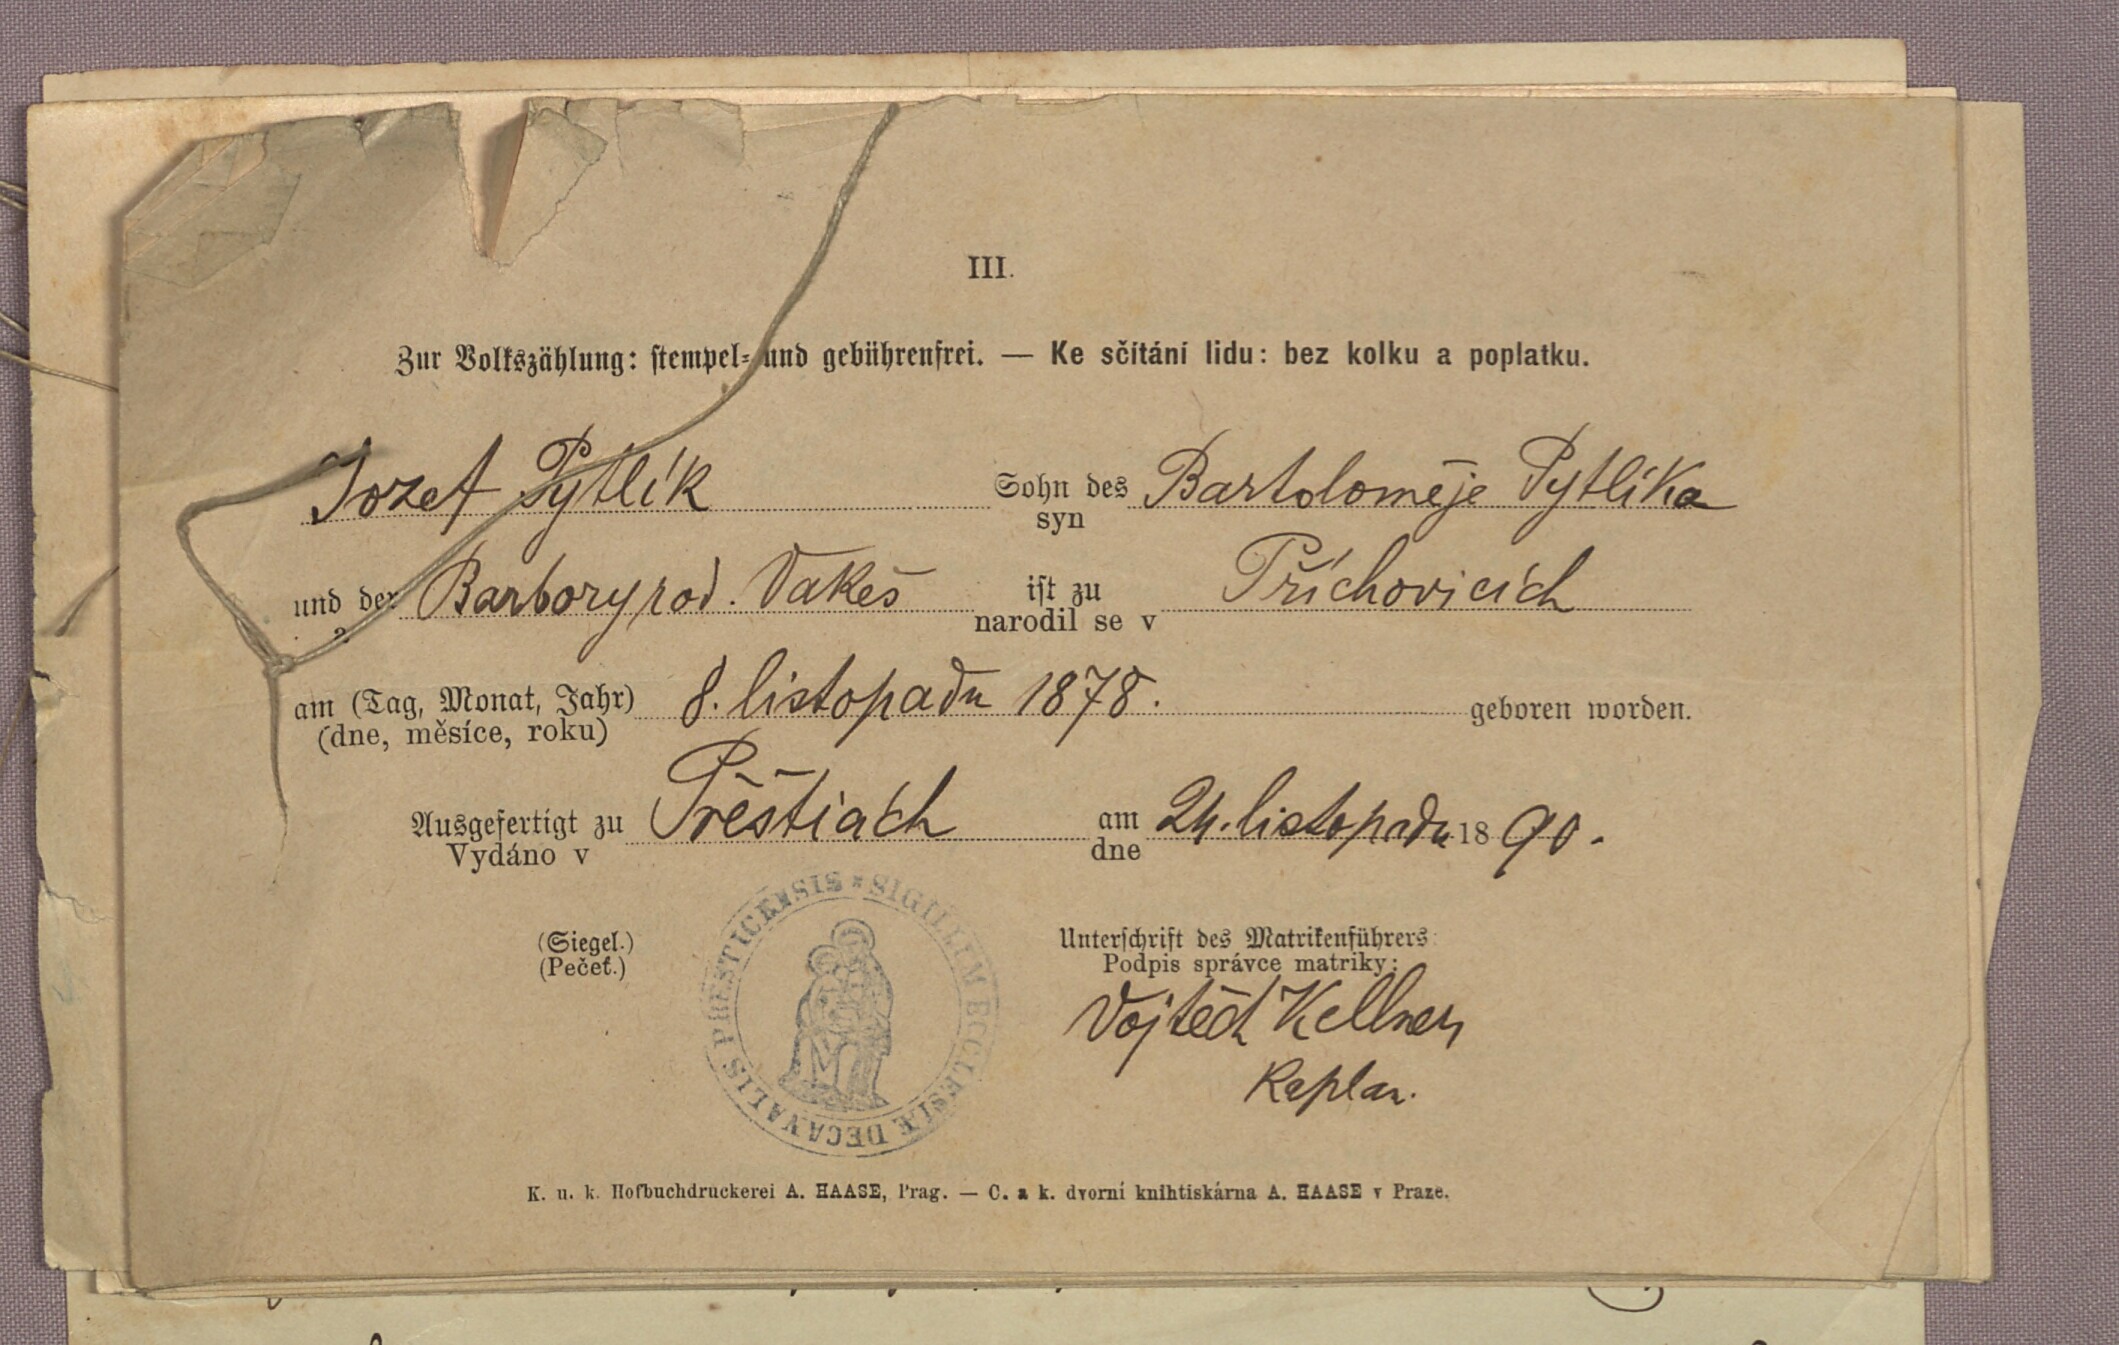 III.
Zur Volkszählung: stempel- und gebührenfrei. — Ke sčítání lidu: bez kolku a poplatku.
Jozef Pytlík Sohn des Bartoloměje Pytlíka
syn
und der Barbory rod. Vakeš ist zu Příchovicích
a narodil se v
am (Tag, Monat, Jahr) 8. listopadu 1878. geboren worden.
(dne, měsíce, roku)
Ausgefertigt zu Přěšticích am 24. listopadu 1890.
Vydáno v dne
(Siegel.) Unterschrift des Matrikenführers:
(Pečeť.) Podpis správce matriky:
SIGILLUM ECCLESIÆ DECANALIS PRESTICENSIS
Vojtěch Kellner
Kaplan.
K. u. k. Hofbuchdruckerei A. HAASE, Prag. — C. a k. dvorní knihtiskárna A. HAASE v Praze.